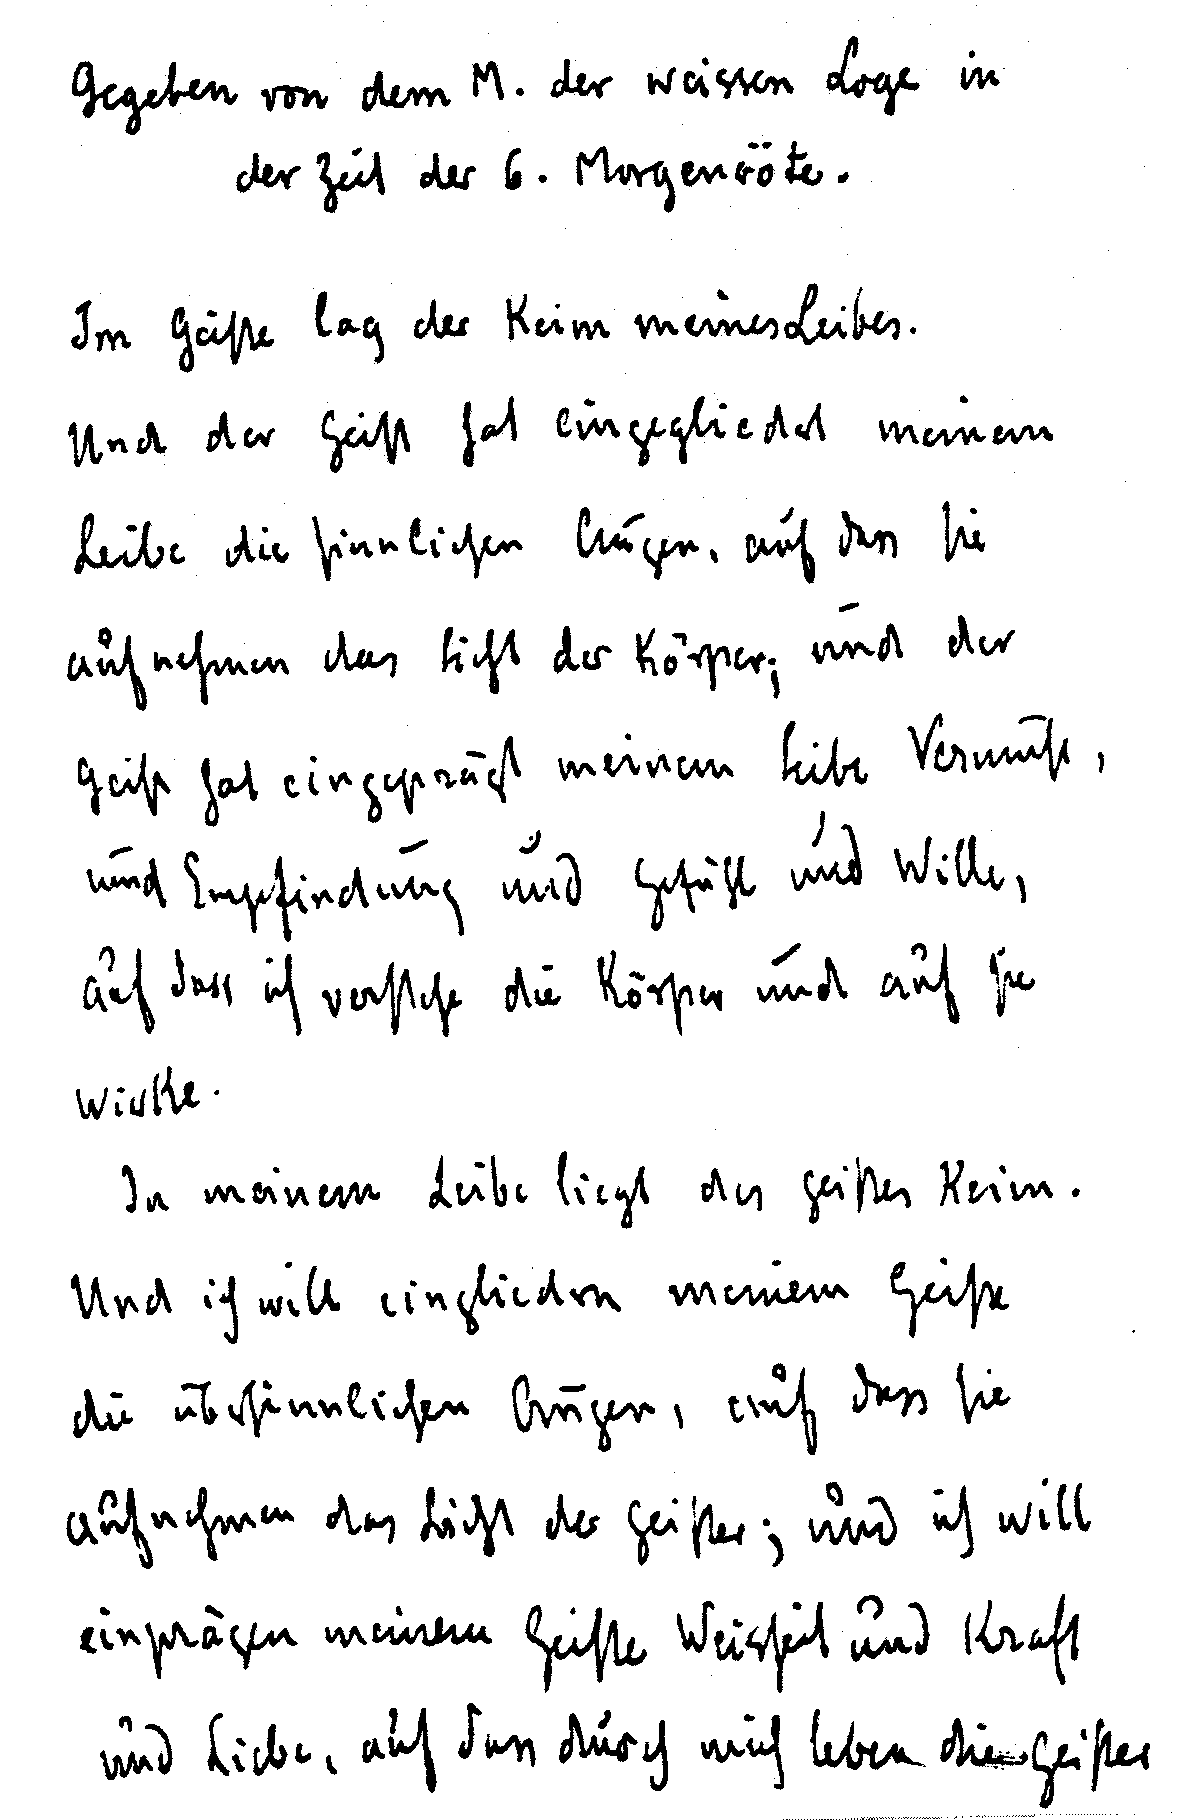 Gegeben von dem M. der weissen Loge in
der Zeit der 6. Morgenröte.
Im Geiste lag der Keim meines Leibes.
Und der Geist hat eingegliedert meinem
Leibe die sinnlichen Augen, auf dass sie
aufnehmen das Licht der Körper; und der
Geist hat eingeprägt meinem Leibe Vernunft,
und Empfindung und Gefühl und Wille,
auf dass ich verstehe die Körper und auf sie
wirke.
In meinem Leibe liegt des Geistes Keim.
Und ich will eingliedern meinem Geiste
die übersinnlichen Augen, auf dass sie
aufnehmen das Licht der Geister; und ich will
einprägen meinem Geiste Weisheit und Kraft
und Liebe, auf dass durch mich leben die Geister